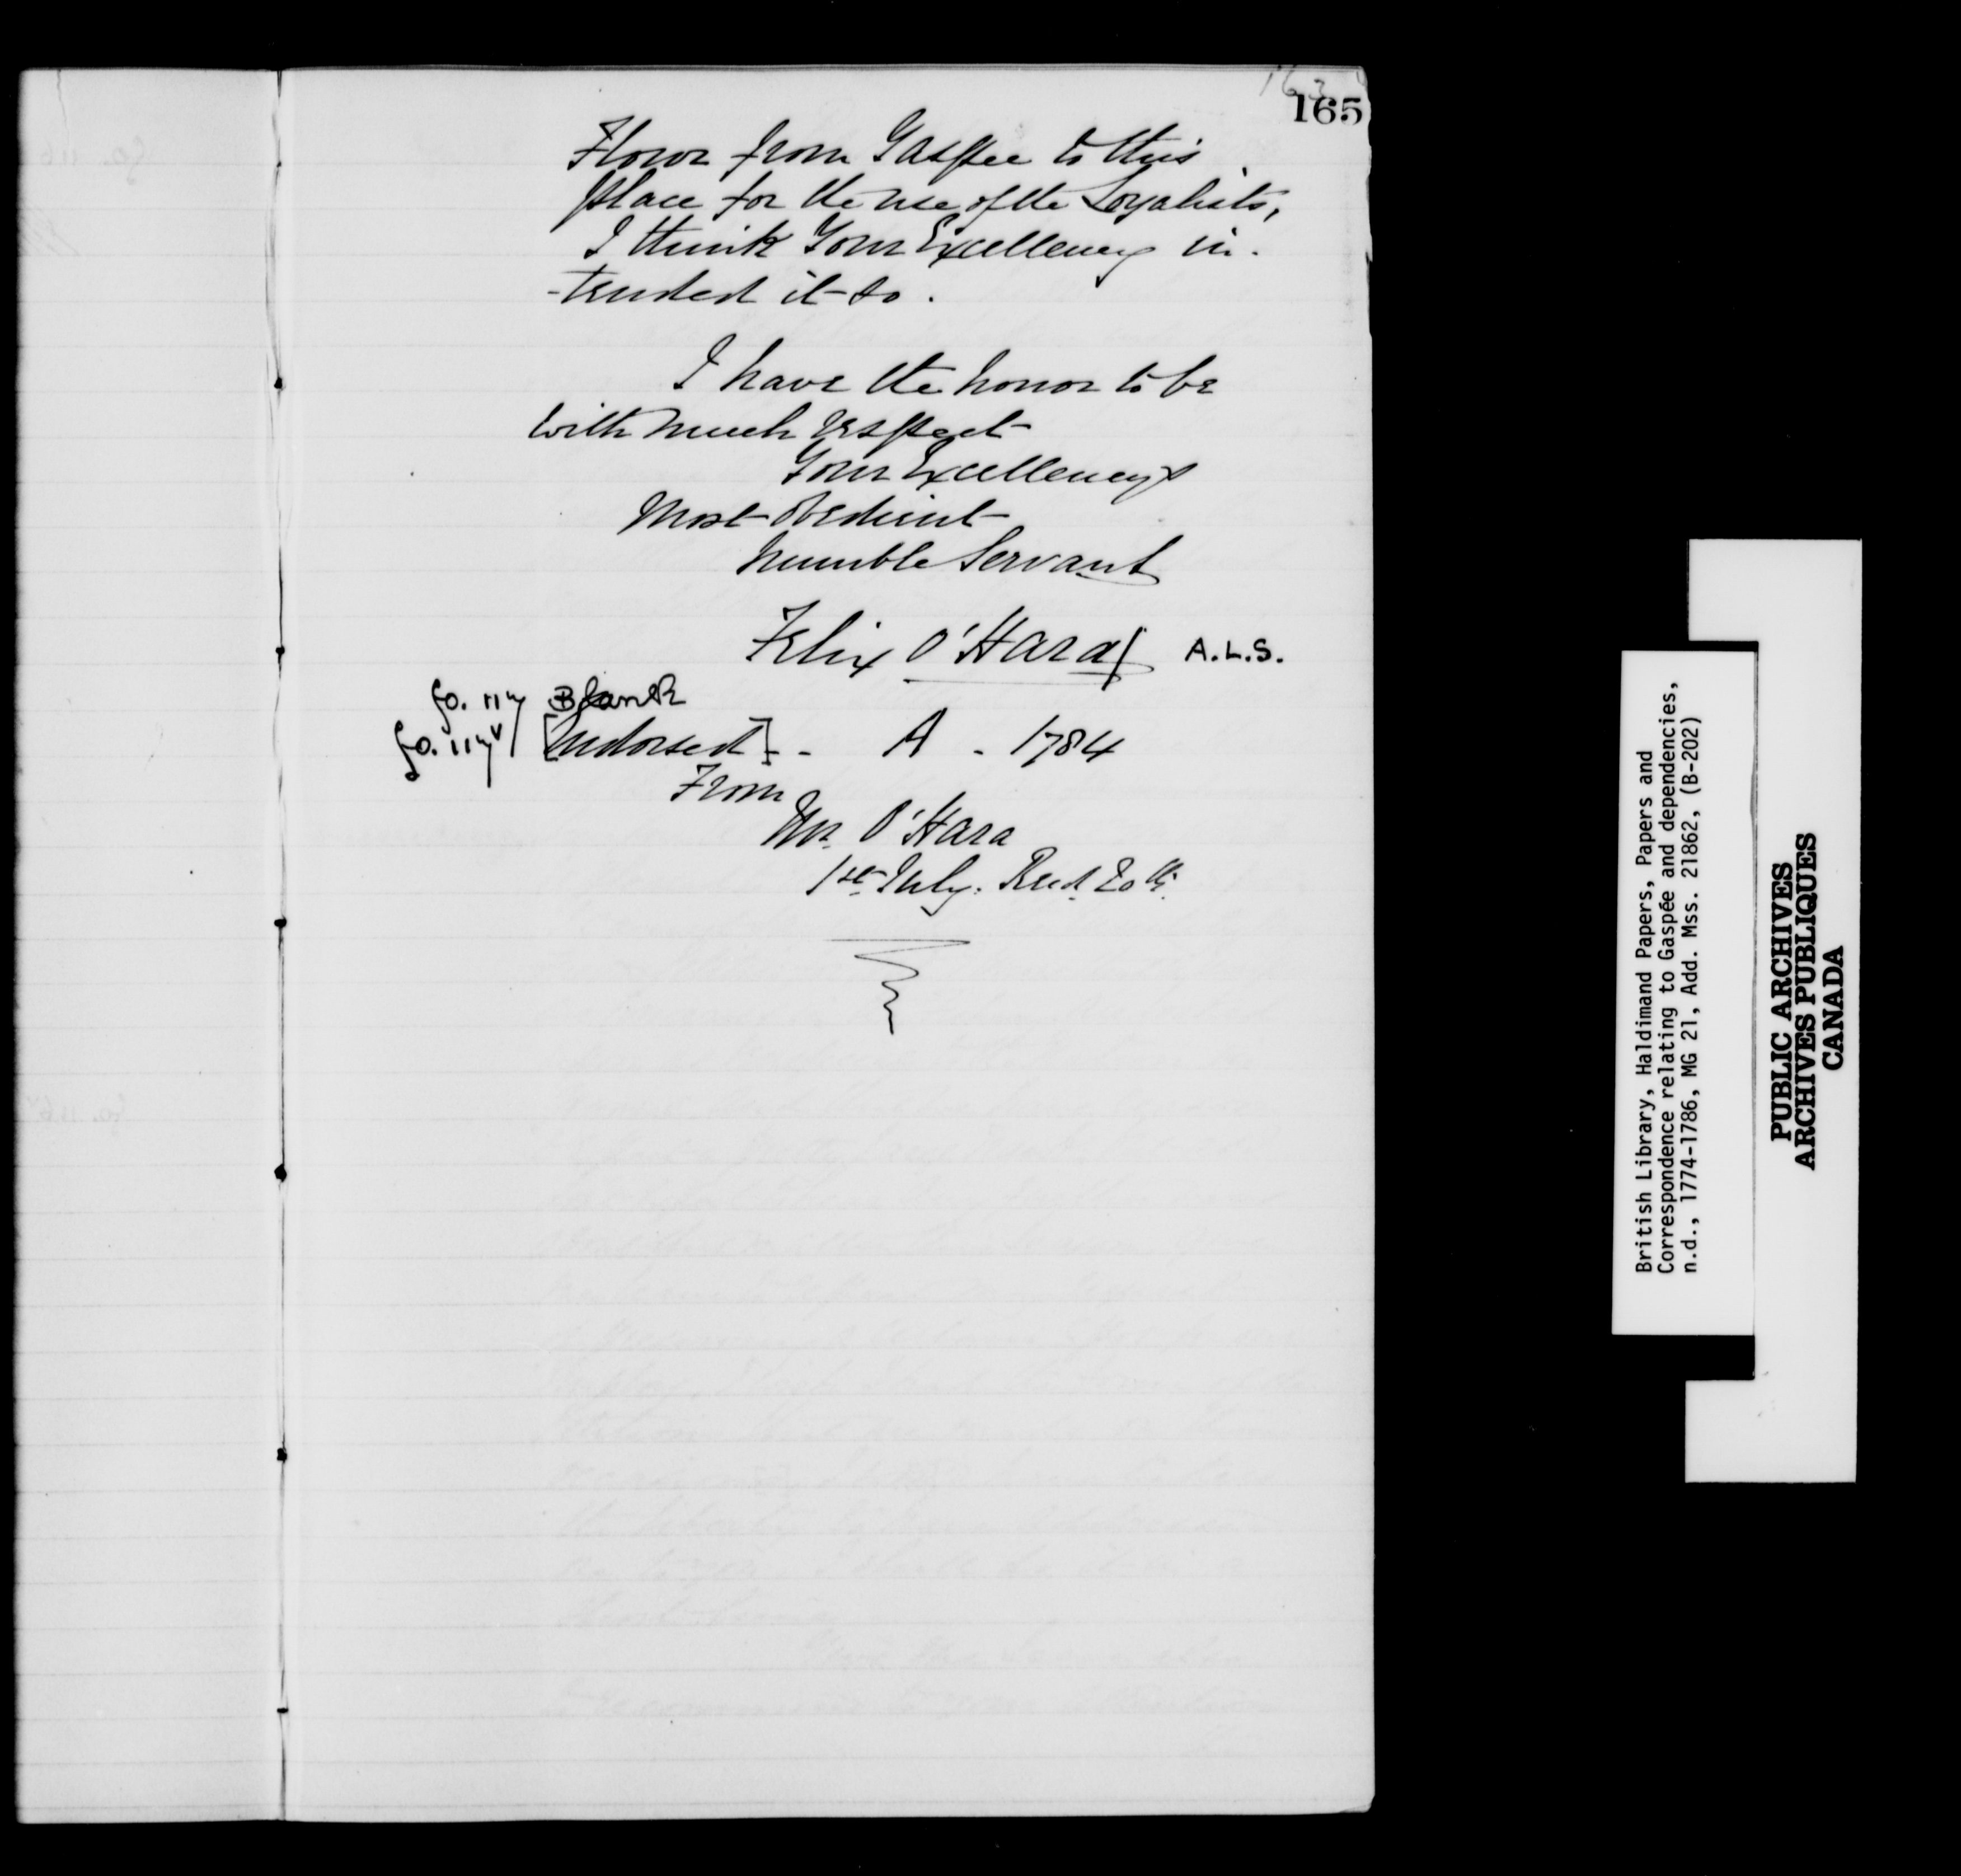 163
165
Flour from Gaspee to this
place for the use of the Loyalists,
I think Your Excellency in-
-tended it so.
I have the honor to be
with much respect
Your Excellency's
Most obedient
humble Servant
Felix O'Hara A.L.S.
fo. 117 Blank
fo. 117v [Endorsed] - A - 1784
From
Mr. O'Hara
1st July. Recd. 20th.
British Library, Haldimand Papers, Papers and
Correspondence relating to Gaspée and dependencies,
n.d., 1774-1786, MG 21, Add. Mss. 21862, (B-202)
PUBLIC ARCHIVES
ARCHIVES PUBLIQUES
CANADA